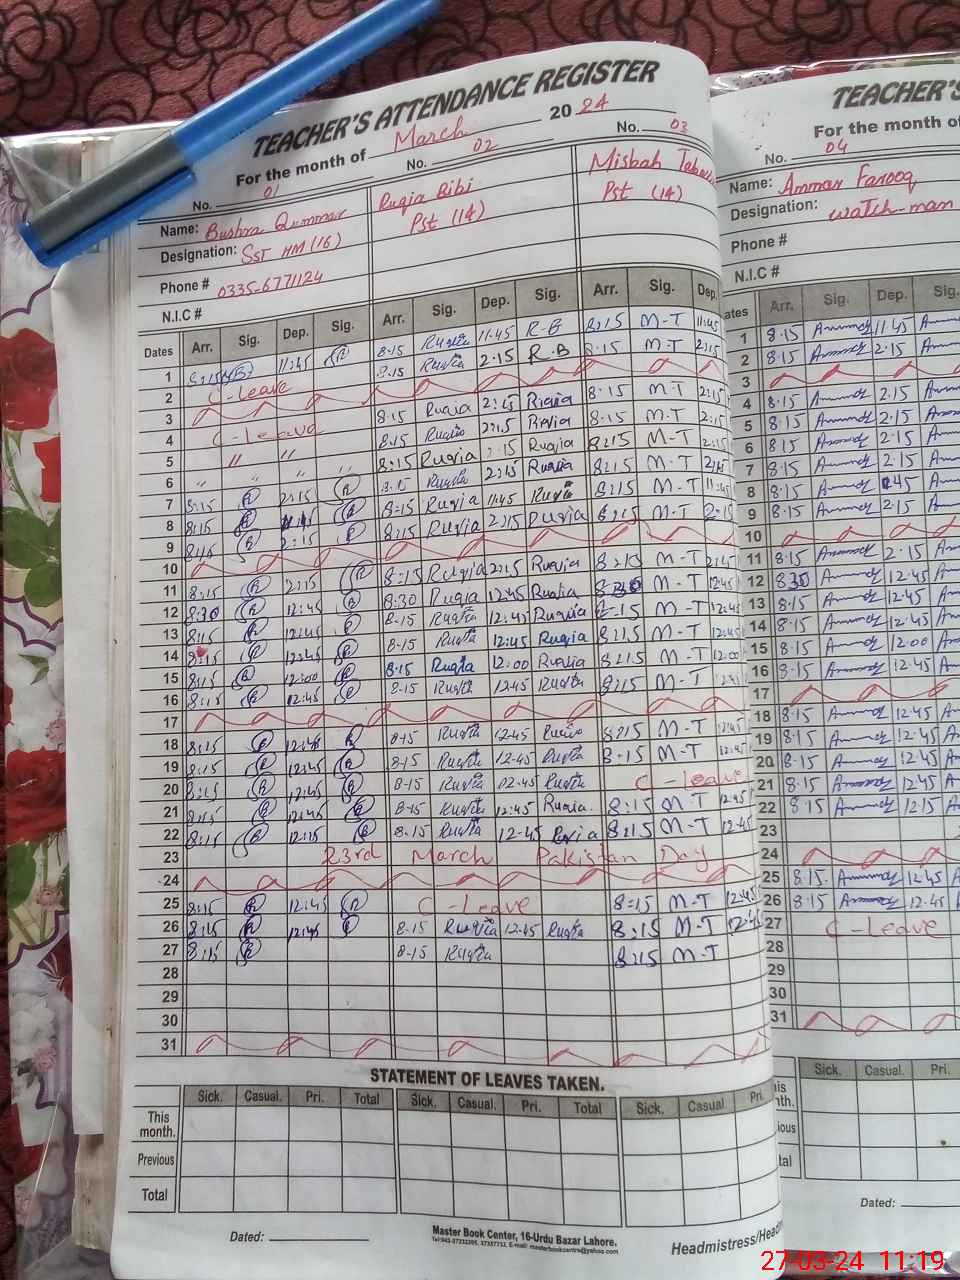 TEACHER'S ATTENDANCE REGISTER
For the month of March 2024
No. 01 No. 02 No. 03
Name: Bushra Qummar Ruqia Bibi Misbah
Designation: SST HM (16) Pst (14) Pst (14)
Phone # 0335-6771124
N.I.C #
Dates Arr. Sig. Dep. Sig. Arr. Sig. Dep. Sig. Arr. Sig. Dep.
1 8:15 11:45 8-15 Ruqia 11:45 R-B 8:15 M-T 11:45
2 C-Leave 8:15 Ruqia 2:15 R.B 8:15 M-T 2:15
3
4 C-Leave 8:15 Ruqia 2:15 Ruqia 8:15 M-T 2:15
5 " " 8:15 Ruqia 2:15 Ruqia 8:15 M-T 2:15
6 " " " " 8:15 Ruqia 2:15 Ruqia 8:15 M-T 2:15
7 8:15 2:15 8:15 Ruqia 2:15 Ruqia 8:15 M-T 2:15
8 8:15 8:15 Ruqia 11:45 Ruqia 8:15 M-T 11:45
9 8:15 2:15 8:15 Ruqia 2:15 Ruqia 8:15 M-T 2:15
10
11 8:15 2:15 8:15 Ruqia 2:15 Ruqia 8:15 M-T 2:15
12 8:30 12:45 8:30 Ruqia 12:45 Ruqia M-T 12:45
13 8:15 12:45 8-15 Ruqia 12:45 Ruqia 8:15 M-T 12:45
14 8:15 12:45 8-15 Ruqia 12:45 Ruqia 8:15 M-T 12:45
15 8:15 12:00 8:15 Ruqia 12:00 Ruqia 8:15 M-T 12:00
16 8:15 12:45 8-15 Ruqia 12:45 Ruqia 8:15 M-T
17
18 8:15 12:45 8-15 Ruqia 12:45 Ruqia 8:15 M-T 12:45
19 8:15 12:45 8-15 Ruqia 12-45 Ruqia 8:15 M-T 12:45
20 8:15 12:45 8-15 Ruqia 12-45 Ruqia C-Leave
21 8:15 12:45 8-15 Ruqia 12:45 Ruqia 8:15 M-T 12:45
22 8:15 12:15 8-15 Ruqia 12-45 Ruqia 8:15 M-T 12:45
23 23rd March Pakistan Day
24
25 8:15 12:45 C-Leave 8:15 M-T 12:45
26 8:15 12:45 8-15 Ruqia 12:45 Ruqia 8:15 M-T 12:45
27 8:15 8-15 Ruqia 8:15 M-T
28
29
30
31
STATEMENT OF LEAVES TAKEN.
Sick. Casual. Pri. Total Sick. Casual. Pri. Total Sick. Casual Pri.
This month.
Previous
Total
Dated:
Master Book Center, 16-Urdu Bazar Lahore.
Headmistress/Head
TEACHER'S
For the month of
No. 04
Name: Ammar Farooq
Designation: watch-man
Phone #
N.I.C #
ates Arr. Sig. Dep. Sig.
1 8:15 11:45
2 8:15 2:15
3
4 8:15 2:15
5 8:15 2:15
6 8:15 2:15
7 8:15 2:15
8 8:15
9 8:15 2:15
10
11 8:15 2:15
12 8:30 12:45
13 8:15 12:45
14 8:15 12:45
15 8:15 12:00
16 8:15 12:45
17
18 8:15 12:45
19 8:15 12:45
20 8:15 12:45
21 8:15 12:45
22 8:15 12:15
23
24
25 8:15 12:45
26 8:15 12:45
27 C-Leave
28
29
30
31
Sick. Casual. Pri.
Dated:
27-03-24 11:19